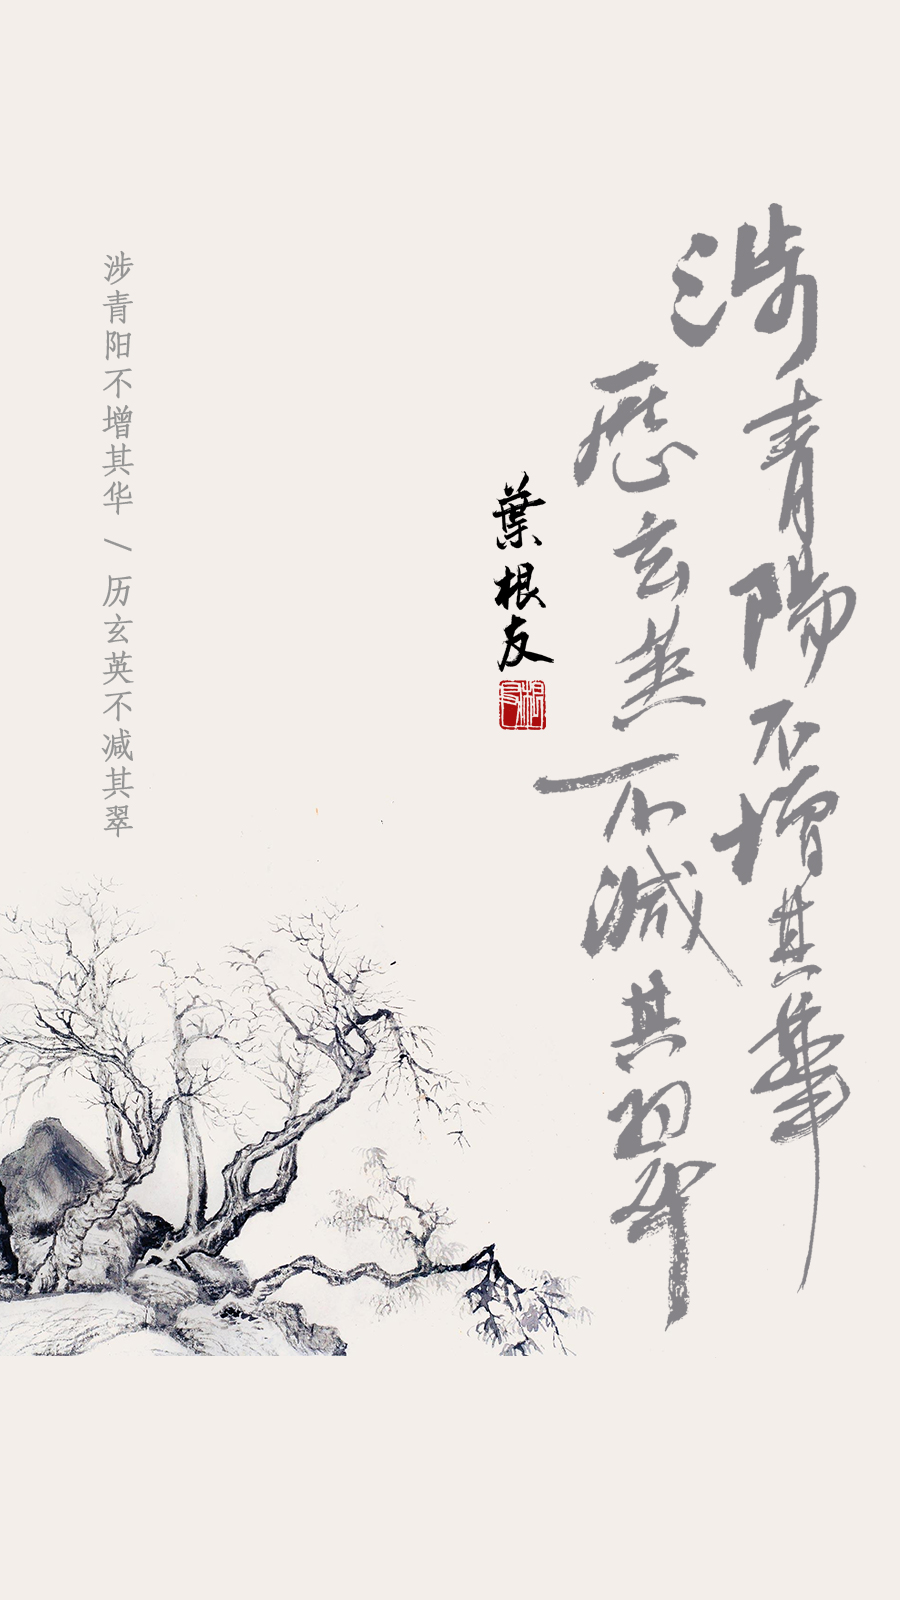 涉青陽不增其華
歷玄英不減其翠
葉根友
涉青阳不增其华 / 历玄英不减其翠